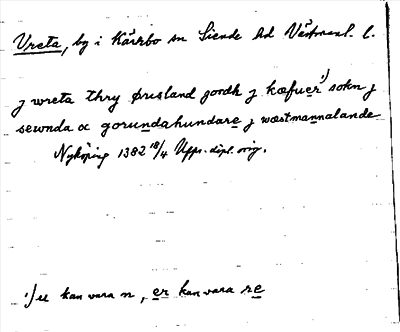 Vreta, by i Kärrbo sn Siende hd Västmanl. l.
j wreta thry ørısland jordh j kæfuer¹⁾ sokn j
sewnda oc gorundahundare j wæstmannalande
Nyköping 1382 18/4 Upps. dipl. orig.
¹⁾ u kan vara n, er kan vara re